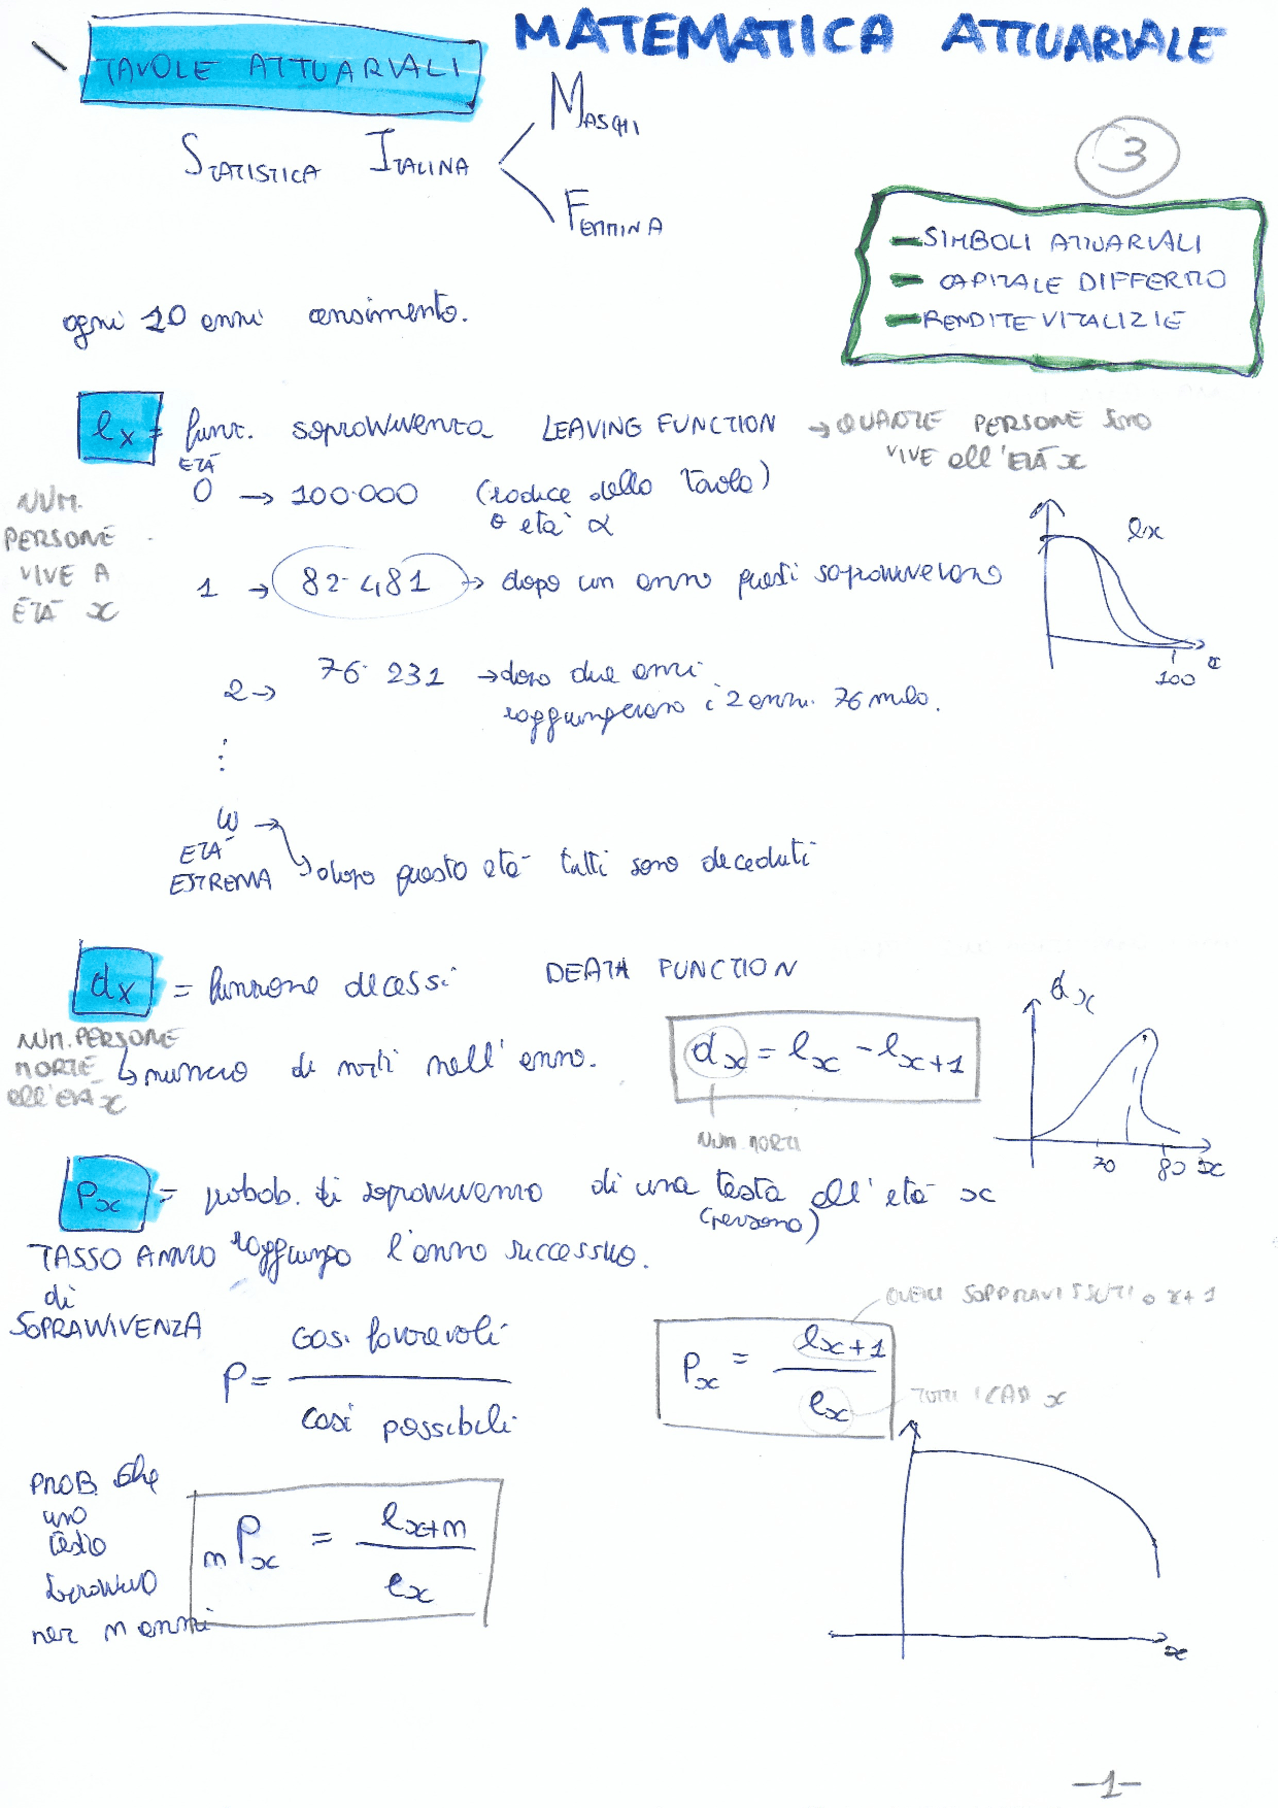 MATEMATICA ATTUARIALE
TAVOLE ATTUARIALI
STATISTICA ITALINA
MASCHI
FEMMINA
3
- SIMBOLI ATTUARIALI
- CAPITALE DIFFERITO
- RENDITE VITALIZIE
ogni 10 anni censimento.
lx = funz. sopravvivenza LEAVING FUNCTION → QUANTE PERSONE SONO
VIVE all'ETÀ x
ETÀ
0 → 100.000 (radice della tavola)
o età α
NUM.
PERSONE
VIVE A
ETÀ x
1 → 82.481 → dopo un anno questi sopravviveranno
lx
100
x
2 → 76.231 → dopo due anni
raggiungeranno i 2 anni 76 mila.
⋮
ω →
ETÀ
ESTREMA
dopo questa età tutti sono deceduti
dx = funzione decessi DEATH FUNCTION
NUM. PERSONE
MORTE
all'ETÀ x
↳ numero di morti nell'anno.
dx = lx - lx+1
NUM. MORTI
dx
70 80 x
Px = probab. di sopravvivenza di una testa all'età x
(persona)
TASSO ANNUO raggiunga l'anno successivo.
di
SOPRAVVIVENZA
P = casi favorevoli / casi possibili
Px = lx+1 / lx
QUELLI SOPPRAVISSUTI a x+1
TUTTI I CASI x
PROB. che
una
testa
sopravviva
per n anni
nPx = lx+n / lx
x
-1-